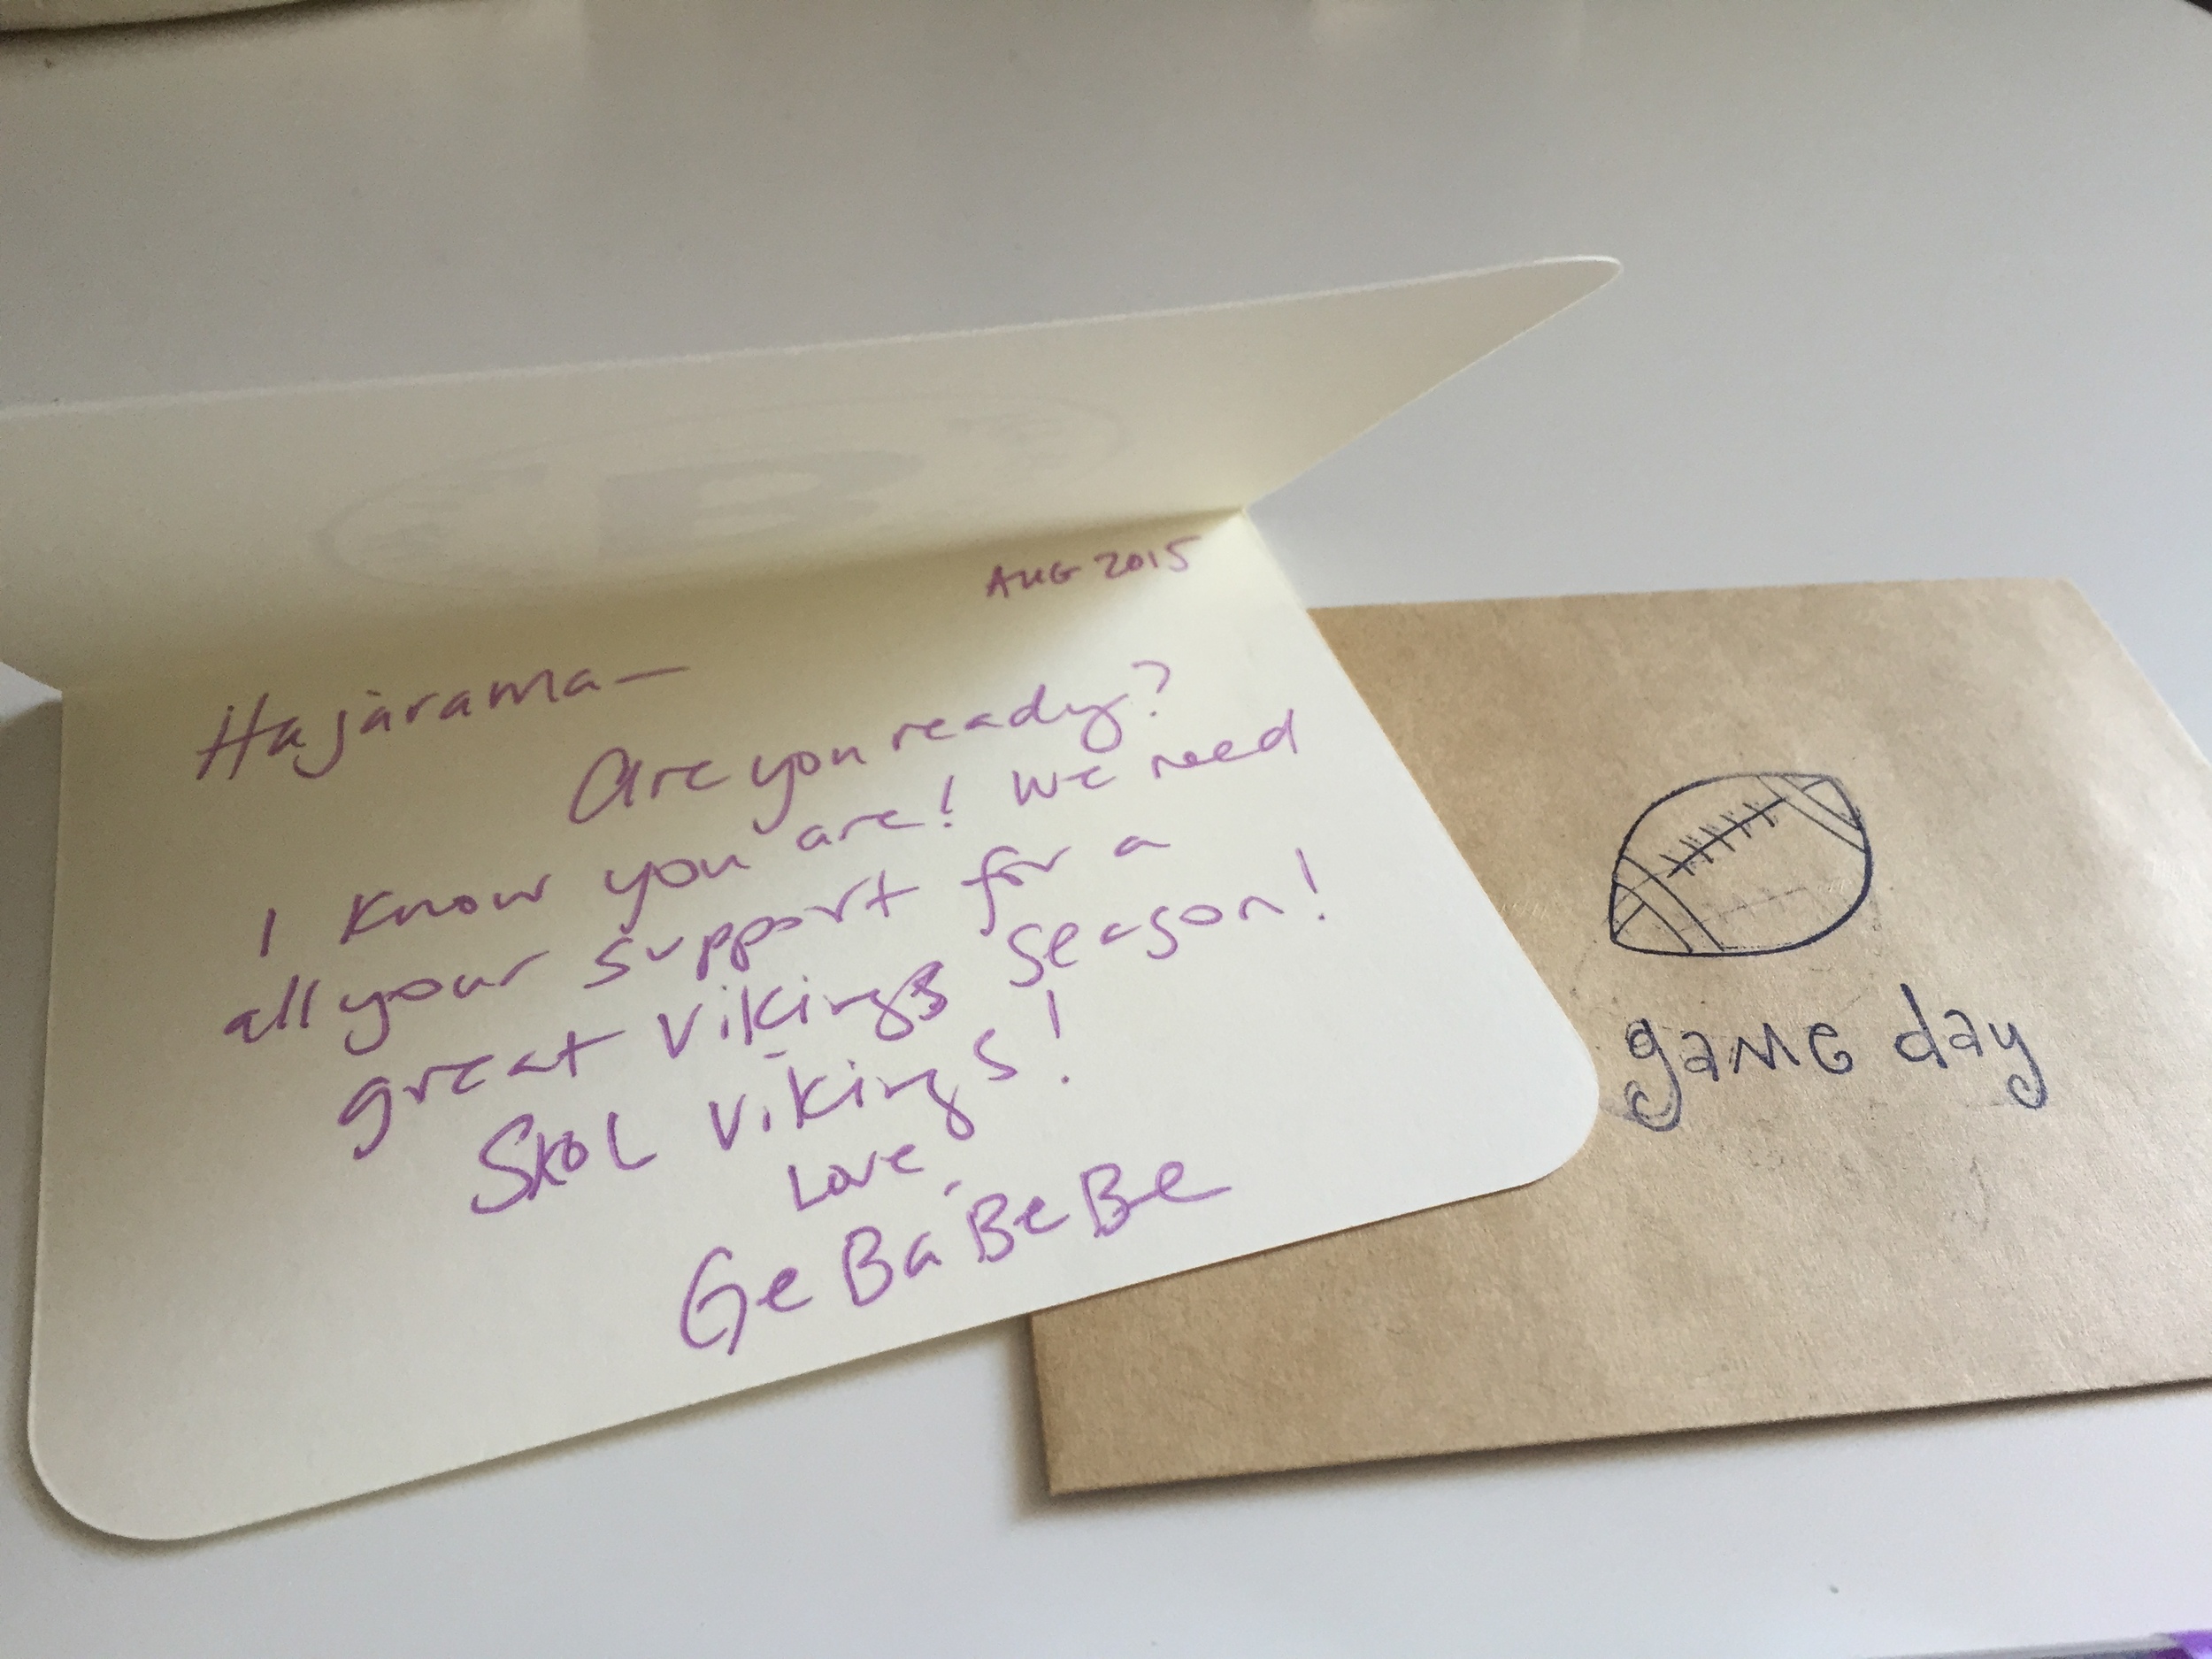 AUG 2015
Hajarama—
Are you ready?
I know you are! We need
all your support for a
great Vikings season!
SKOL Vikings!
Love,
GeBaBeBe
game day